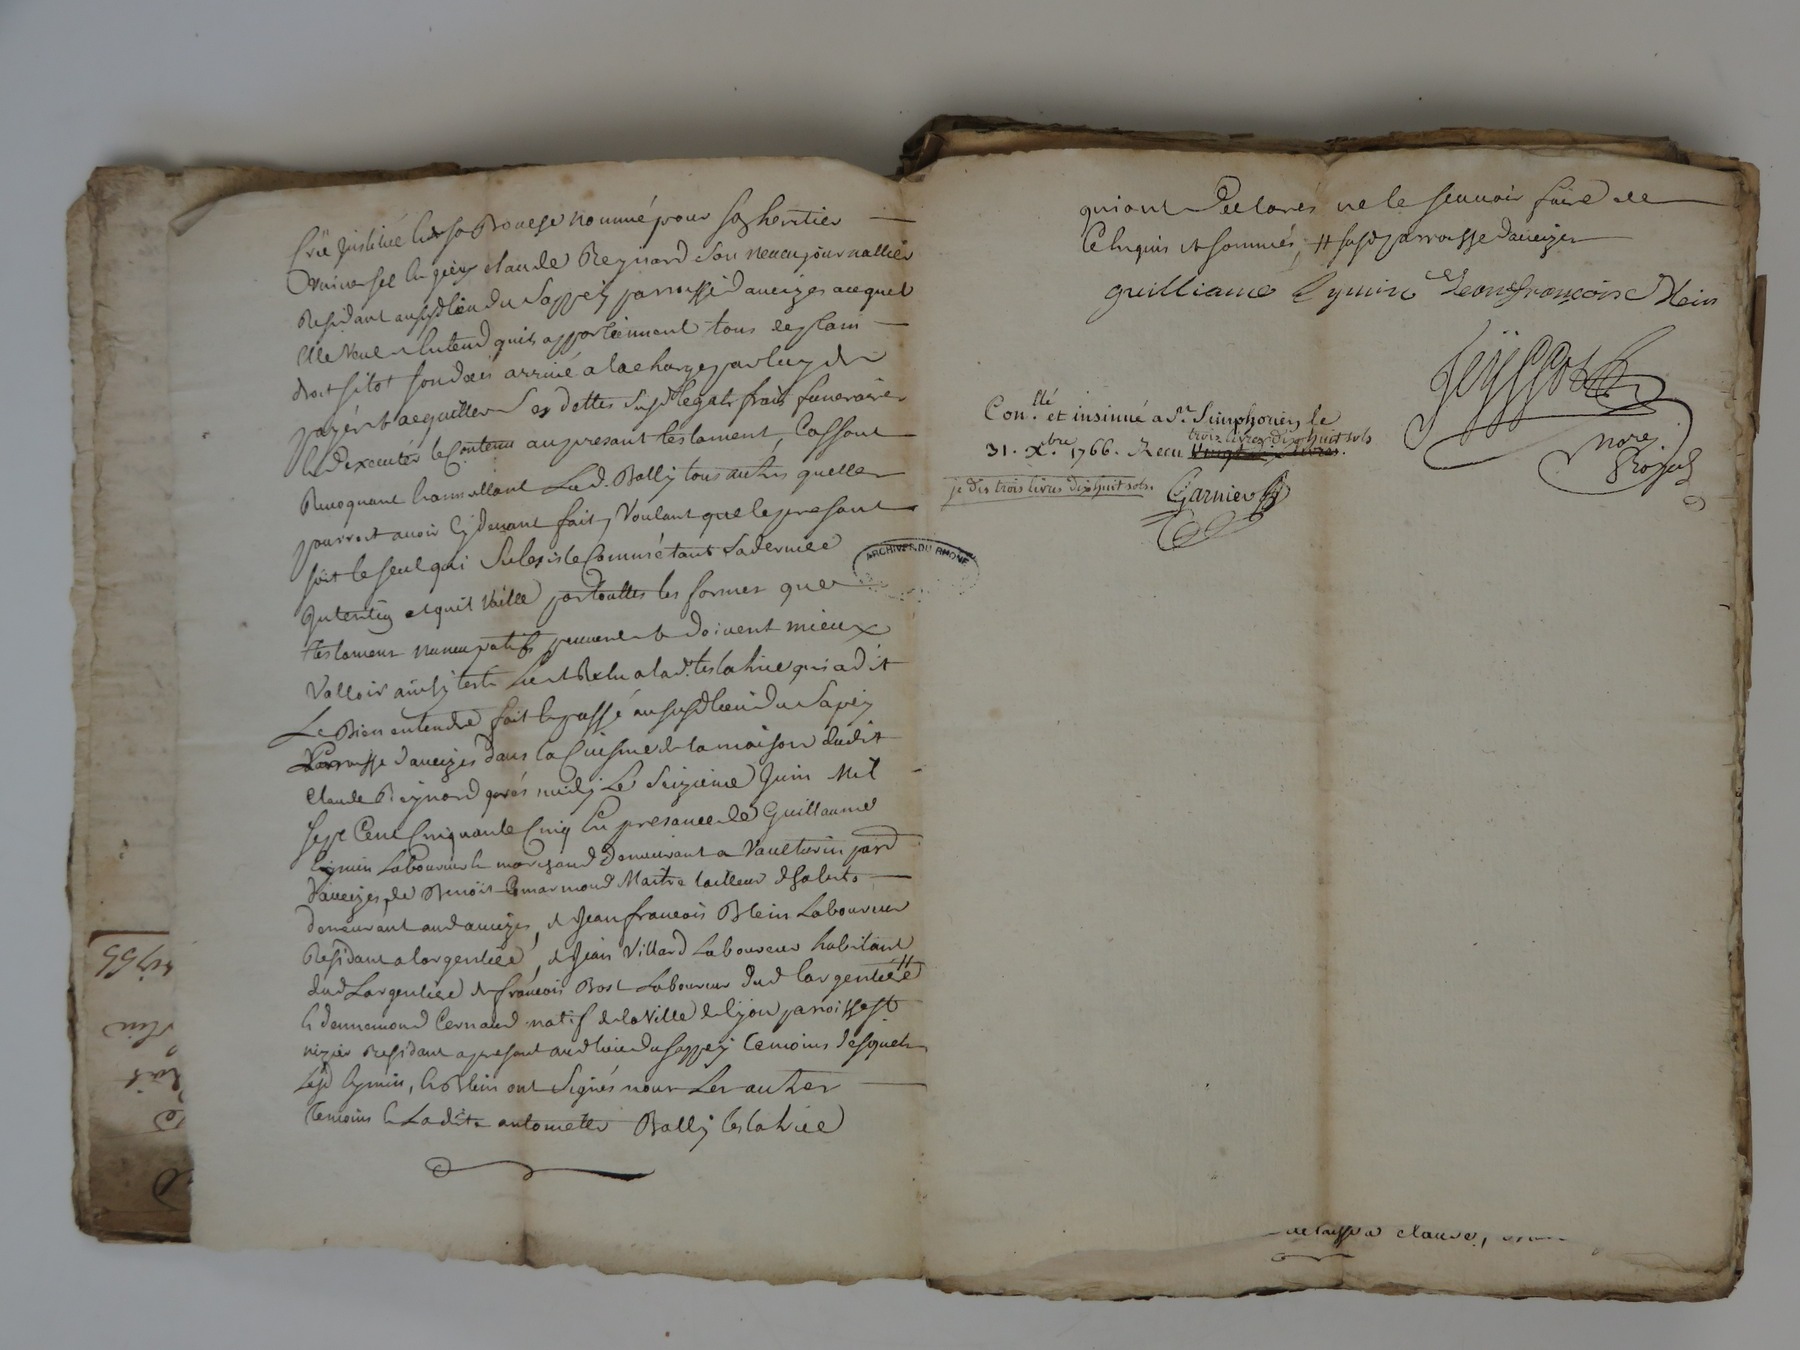 Crée Institué de sa Bouche nommé pour son heritier
Universel en gens claude Reynard son neveu journallier
Residant aususd lieu du Sappey parroisse daveizes auquel
Elle veut et entend quils appartiennent tous de plain
droit sitot son deces arrivé a la charge par luy de
payer et acquitter ses dettes susd legats frais funeraires
et dexecuter le Contenu au presant testament, Cassant
Revoquant Et annullant Lad. Bally tous autres quelle
pourroit avoir cy devant faits, Voulant que le presant
soit le seul qui Subsiste Comme étant sa derniere
Intention et quil vaille par touttes les formes que
testament nuncupatifs peuvent et doivent mieux
Valloir ainsy testé Lu et Relu a lad. testatrice qui a dit
Le Bien entendre fait et passé ausUsd lieu du Sapey
Parroisse daveizes dans la Cuisine de la maison dudit
claude Reynard après midy Le Seizieme Juin Mil
Sept Cent Cinquante Cinq En presance de Guillaume
Eymin Laboureur et marchand demeurant a Vaulturin pard
daveizes, de Benoit Maitre tailleur dhabits
demeurant aud aveizes, et Jean francois Blein Laboureur
Residant a largentiere, et Jean Villard Laboureur habitant
dud Largentiere et francois Bost Laboureur dud largentiere #
Et dennemond Cernaud natif de la Ville de lyon paroisse st
nizier Residant apresent aud lieu du Sappey temoins desquels
Lesd Eymin, Et Blein ont signés non Les autres
temoins Et Ladite antoinette Bally testatrice
qui ont Declarés ne le scavoir faire de
ce Enquis et sommés, # susd parroisse daveizes
guilliame Eymin Jean françois Blein
Con.llé et insinué a St. Simphorien, le
trois livres dix huit sols
31. Xbre. 1766. Recu
je dis trois livres dix huit sols.
Garnier
nore
Royal
ARCHIVES DU RHONE
claude,